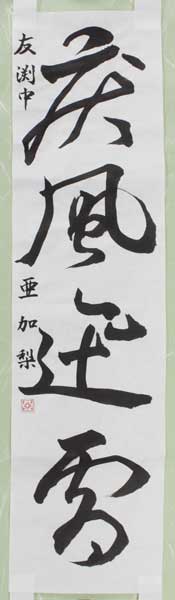 疾風迅雷
友渕中 亜加梨